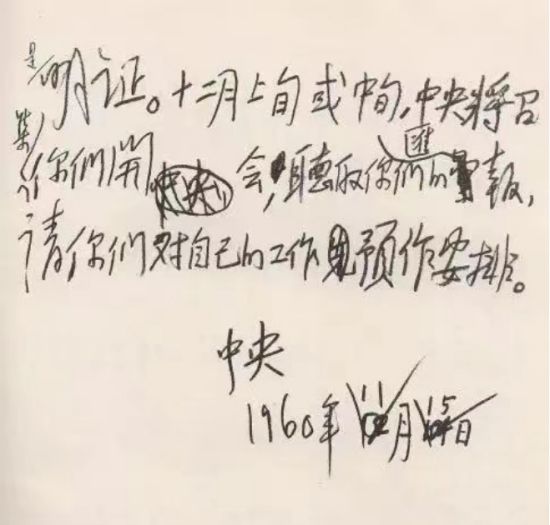 是明证。十二月上旬或中旬，中央将召
集你们開会，聽取你们的匯報，
请你们对自己的工作预作安排。
中央
1960年11月15日